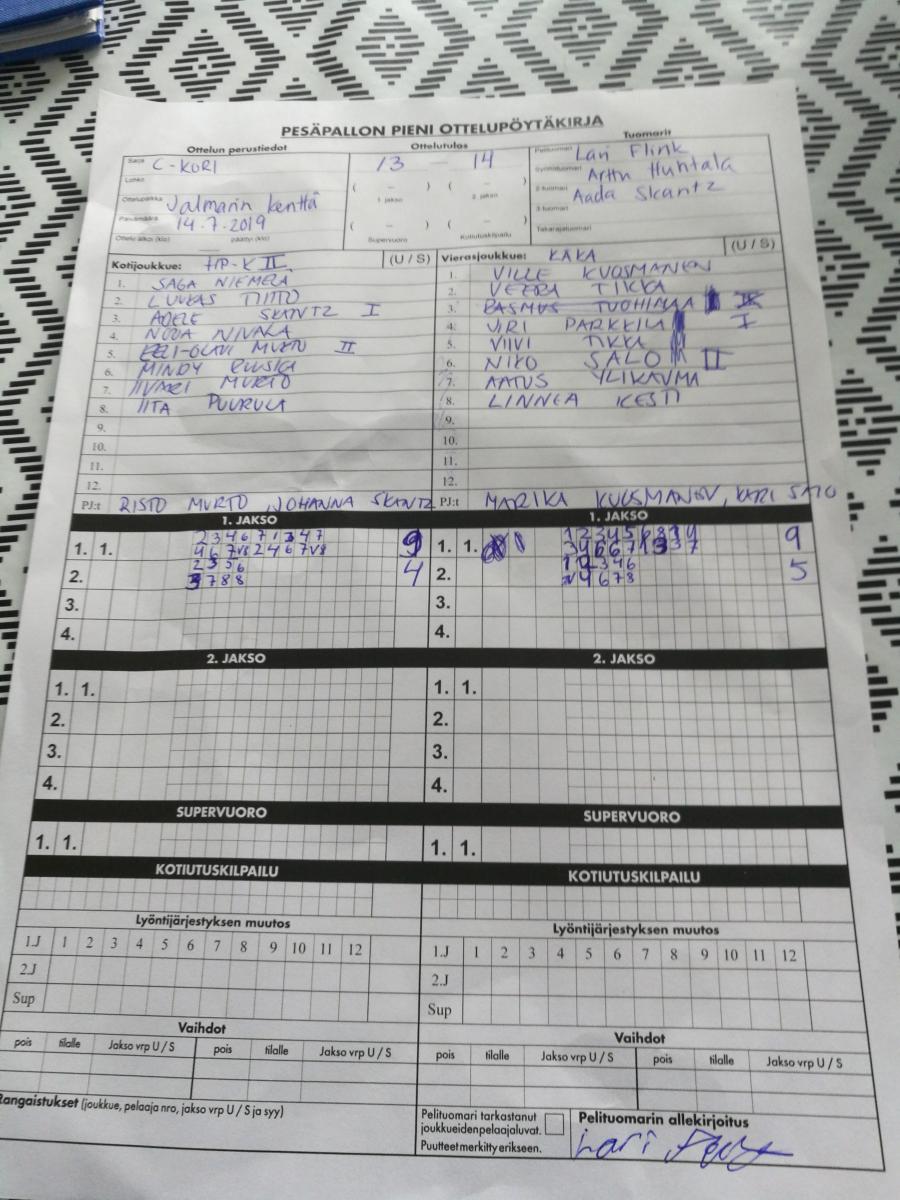 PESÄPALLON PIENI OTTELUPÖYTÄKIRJA
Ottelun perustiedot
Ottelutulos
Tuomarit
Sarja C-KORI
Lohko
Ottelupaikka Jalmarin kenttä
Päivämäärä 14.7.2019
Ottelu alkoi (klo) päättyi (klo)
13 – 14
( – ) ( – )
1. jakso 2. jakso
( – ) ( – )
Supervuoro Kotiutuskilpailu
Pelituomari Lari Flink
Syöttötuomari Arttu Huhtala
2-tuomari Aada Skantz
3-tuomari
Takarajatuomari
Kotijoukkue: HP-K II (U / S)
1. SAGA NIEMELÄ
2. LUUKAS TIITTO
3. ADELE SKANTZ I
4. NOOA NIVALA
5. EELI-OLAVI MURTO II
6. MINDY RUUSKA
7. IIVARI MURTO
8. IITA PUURULA
9.
10.
11.
12.
PJ:t RISTO MURTO, JOHANNA SKANTZ
Vierasjoukkue: KAKA (U / S)
1. VILLE KUOSMANEN
2. VEERA TIKKA
3. RASMUS TUOHIMAA
4. VIRI PARKKILA I
5. VIIVI TIKKA
6. NIKO SALO II
7. AATUS YLIKAUMA
8. LINNEA KESTI
9.
10.
11.
12.
PJ:t MARIKA KUOSMANEN, KARI SALO
1. JAKSO
1. 1. 2 3 4 6 7 1 3 4 7 9
4 6 7 V8 2 4 6 7 V8
2. 2 3 5 6 4
3 7 8 8
3.
4.
1. JAKSO
1. 1. 9
2. 5
3.
4.
2. JAKSO
1. 1.
2.
3.
4.
2. JAKSO
1. 1.
2.
3.
4.
SUPERVUORO
1. 1.
SUPERVUORO
1. 1.
KOTIUTUSKILPAILU
KOTIUTUSKILPAILU
Lyöntijärjestyksen muutos
1.J 1 2 3 4 5 6 7 8 9 10 11 12
2.J
Sup
Lyöntijärjestyksen muutos
1.J 1 2 3 4 5 6 7 8 9 10 11 12
2.J
Sup
Vaihdot
pois tilalle Jakso vrp U / S pois tilalle Jakso vrp U / S
Vaihdot
pois tilalle Jakso vrp U / S pois tilalle Jakso vrp U / S
Rangaistukset (joukkue, pelaaja nro, jakso vrp U / S ja syy)
Pelituomari tarkastanut
joukkueiden pelaajaluvat.
Puutteet merkitty erikseen.
Pelituomarin allekirjoitus
Lari